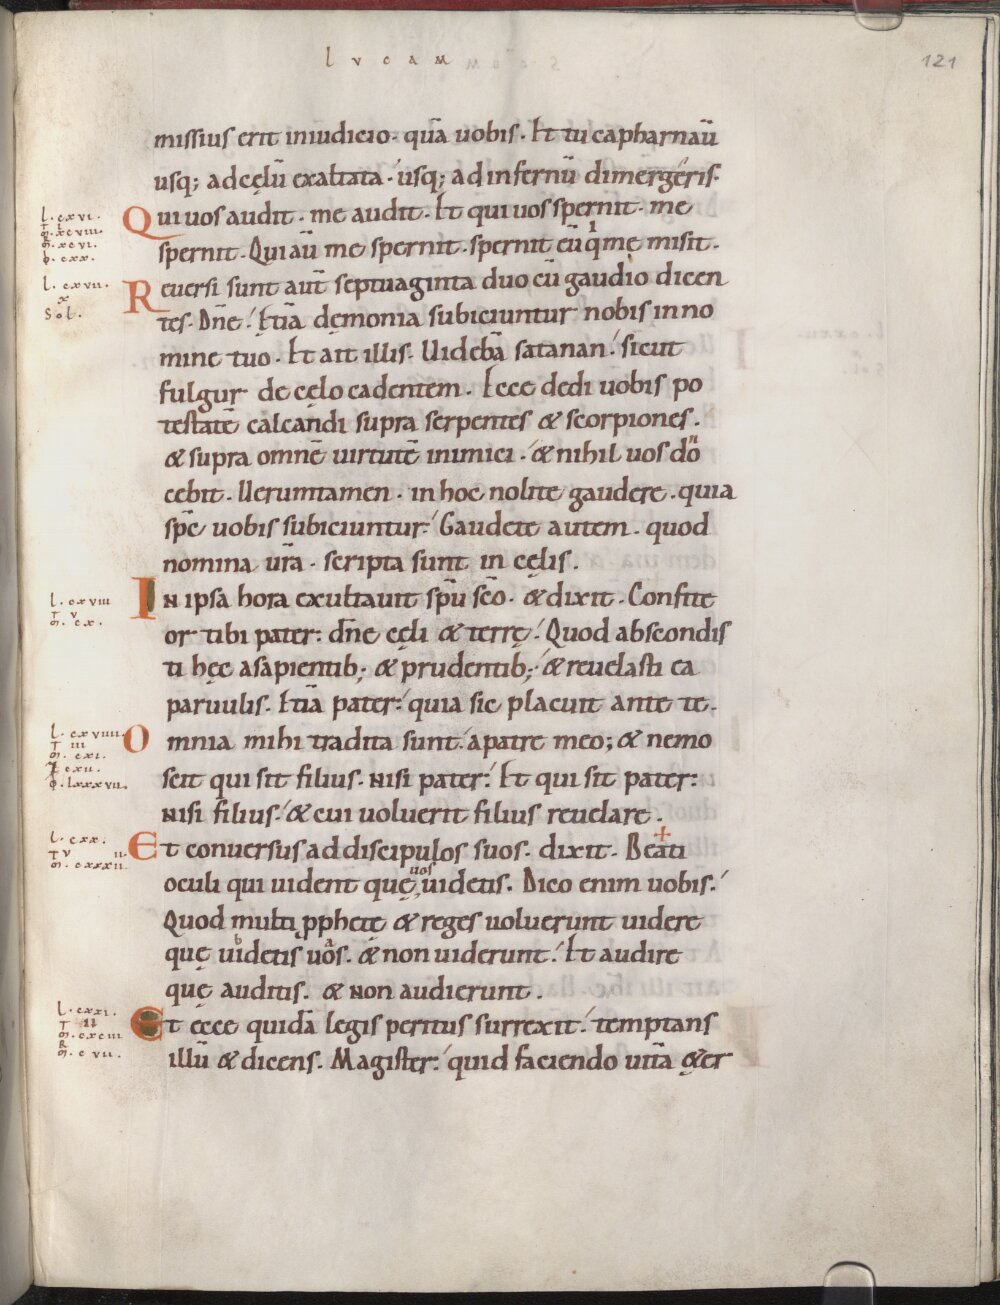 LVCAM
121
missius erit iniudicio. quā uobis. Et tu capharnaū
usq; adcęlū exaltata. usq; adinfernū dimergeris.
Qui uos audit. me audit. Et qui uos spernit. me
spernit. Qui aū me spernit. spernit eū qi me misit.
Reuersi sunt aut̄ septuaginta duo cū gaudio dicen
tes. Dn̄e. Etiā dęmonia subiciuntur nobis in no
mine tuo. Et ait illis. Uidebā satanan. sicut
fulgur de cęlo cadentem. Ecce dedi uobis po
testatē calcandi supra serpentes & scorpiones.
& supra omnē uirtutē inimici. & nihil uos dō
cebit. Uerumtamen. in hoc nolite gaudere. quia
sp̄c uobis subiciuntur. Gaudete autem. quod
nomina ur̄a. scripta sunt in cęlis.
IN ipsa hora exultauit sp̄u sc̄o. & dixit. Confite
or tibi pater: dn̄e cęli & terrę. Quod abscondis
ti hęc asapientib; & prudentib; & reuelasti ea
paruulis. Etiā pater. quia sic placuit ante te.
Omnia mihi tradita sunt. apatre meo; & nemo
scit qui sit filius. Nisi pater. Et qui sit pater:
Nisi filius. & cui uoluerit filius reuelare.
Et conuersus ad discipulos suos. dixit. Beati
oculi qui uident quę uos uidetis. Dico enim uobis.
Quod multi pphetę & reges uoluerunt uidere
quę uidetis uos. & non uiderunt. Et audire
quę auditis. & Non audierunt.
Et ecce quidā legis peritus surrexit. temptans
illū & dicens. Magister. quid faciendo uitā ęter
l. cxvi.
l. cxvii.
x
Sol.
l. cxviii
l. cxviiii.
l. cxx.
l. cxxi.